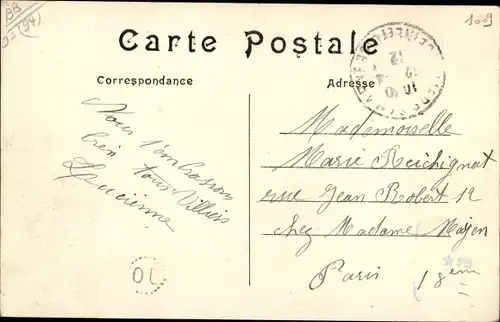 BB
(94)
1009
Carte Postale
Correspondance
Adresse
Nous t'embrassons
bien tous Villiers
Lucienne
Mademoiselle
Marie Reichignat
rue Jean Robert 12
chez Madame Mayen
Paris 18ème
OL